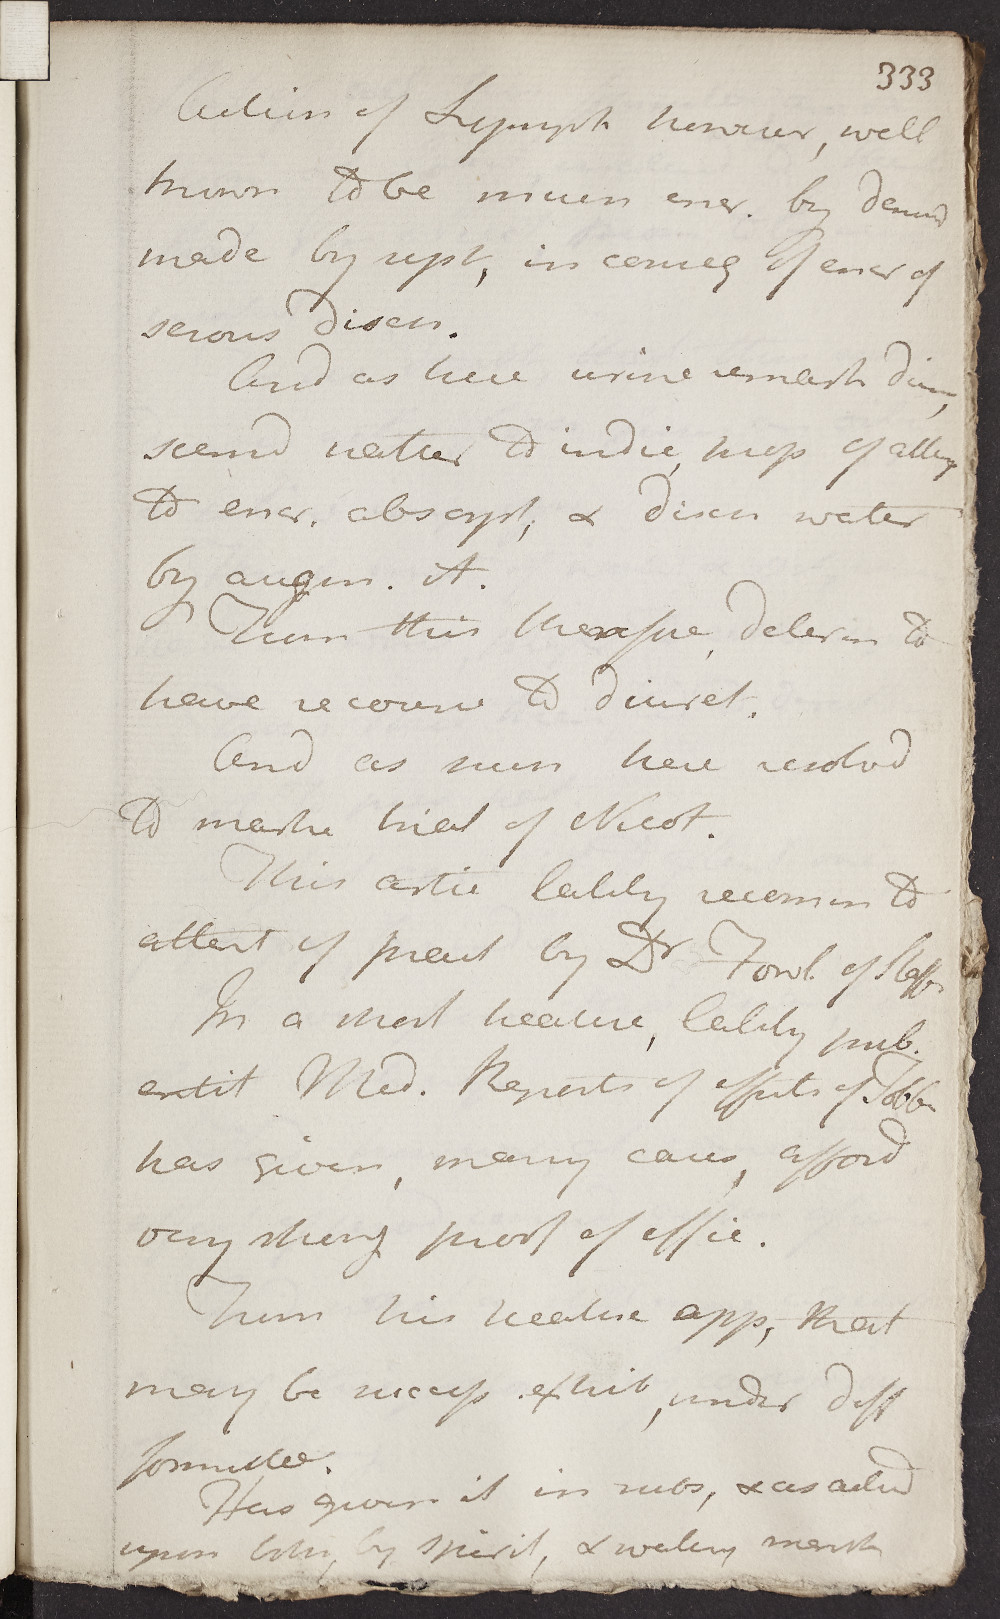 333
Action of Lymph however, well
known to be much encr. by demand
made by rupt, in conseq of encr of
serous disch.
And as here urine remark dim,
seemd natur to indic, prop of attemp
to encr. absorpt, & disch water
by augm. it.
From this therefore, determ to
have recourse to diuret.
And as such here resolvd
to make trial of Nicot.
This artic lately recomm to
attent of pract by Dr Fowl. of Staff
In a short treatise, lately pub.
entit Med. Reports of effects of Tobb
has given, many cases, afford
very strong proof of effic.
From his treatise app, that
may be success exhib, under diff
formulae.
Has given it in subs, & as acted
upon both, by spirit, & watery menst